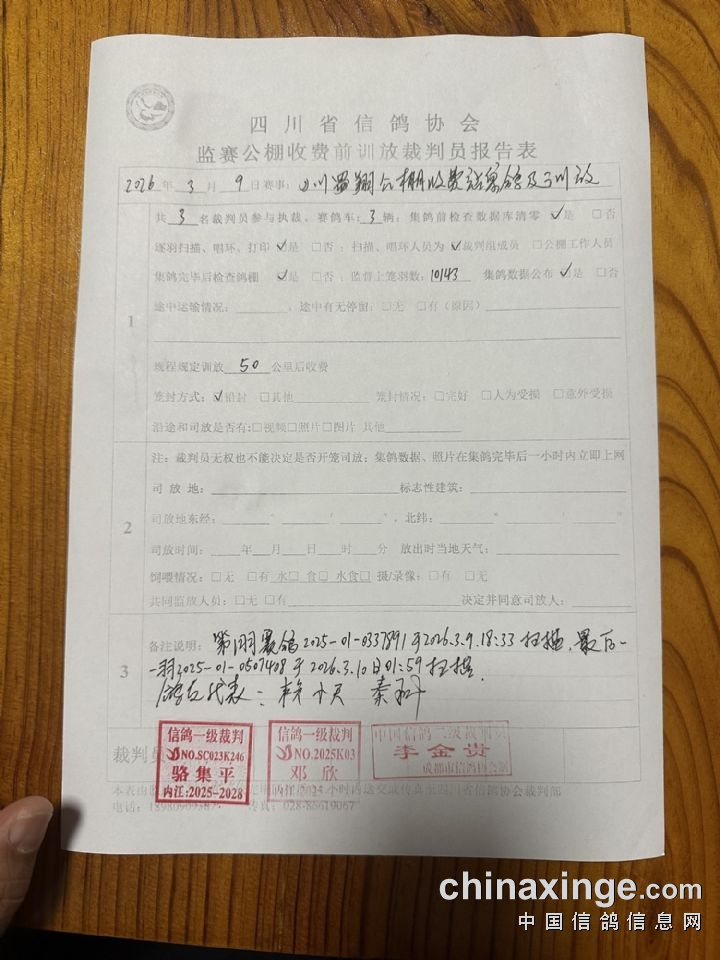 四川省信鸽协会
监赛公棚收费前训放裁判员报告表
2026年3月9日赛事：四川蜀翔公棚收费站集鸽及训放
共3名裁判员参与执裁、赛鸽车：3辆；集鸽前检查数据库清零✓是 □否
逐羽扫描、唱环、打印✓是 □否；扫描、唱环人员为✓裁判组成员 □公棚工作人员
集鸽完毕后检查鸽棚 ✓是 □否；监督上笼羽数：10143 集鸽数据公布✓是 □否
途中运输情况：________，途中有无停留：□无 □有（原因）
1
规程规定训放50公里后收费
笼封方式：✓铅封 □其他 笼封情况：□完好 □人为受损 □意外受损
沿途和司放是否有：□视频□照片□图片 其他
注：裁判员无权也不能决定是否开笼司放；集鸽数据、照片在集鸽完毕后一小时内立即上网
司 放 地： 标志性建筑：
2
司放地东经： ° ′ ″，北纬： ° ′ ″
司放时间：____年__月__日__时__分 放出时当地天气：
饲喂情况：□无 □有 水□ 食□ 水食□ 摄/录像：□有 □无
共同监放人员：□无 □有 决定并同意司放人：
3
备注说明：第1羽赛鸽2025-01-0337891于2026.3.9.18:33扫描，最后一
羽2025-01-0507408于2026.3.10日01:59扫描.
鸽友代表：秦
裁判员
信鸽一级裁判
NO.SC023K246
骆集平
内江:2025-2028
信鸽一级裁判
NO.2025K03
邓欣
中国信鸽二级裁判员
李金贵
成都市信鸽协会制
本表由
小时内送交或传真至四川省信鸽协会裁判部
电话：18980909387 传真：028-85619067
chinaxinge.com
中国信鸽信息网